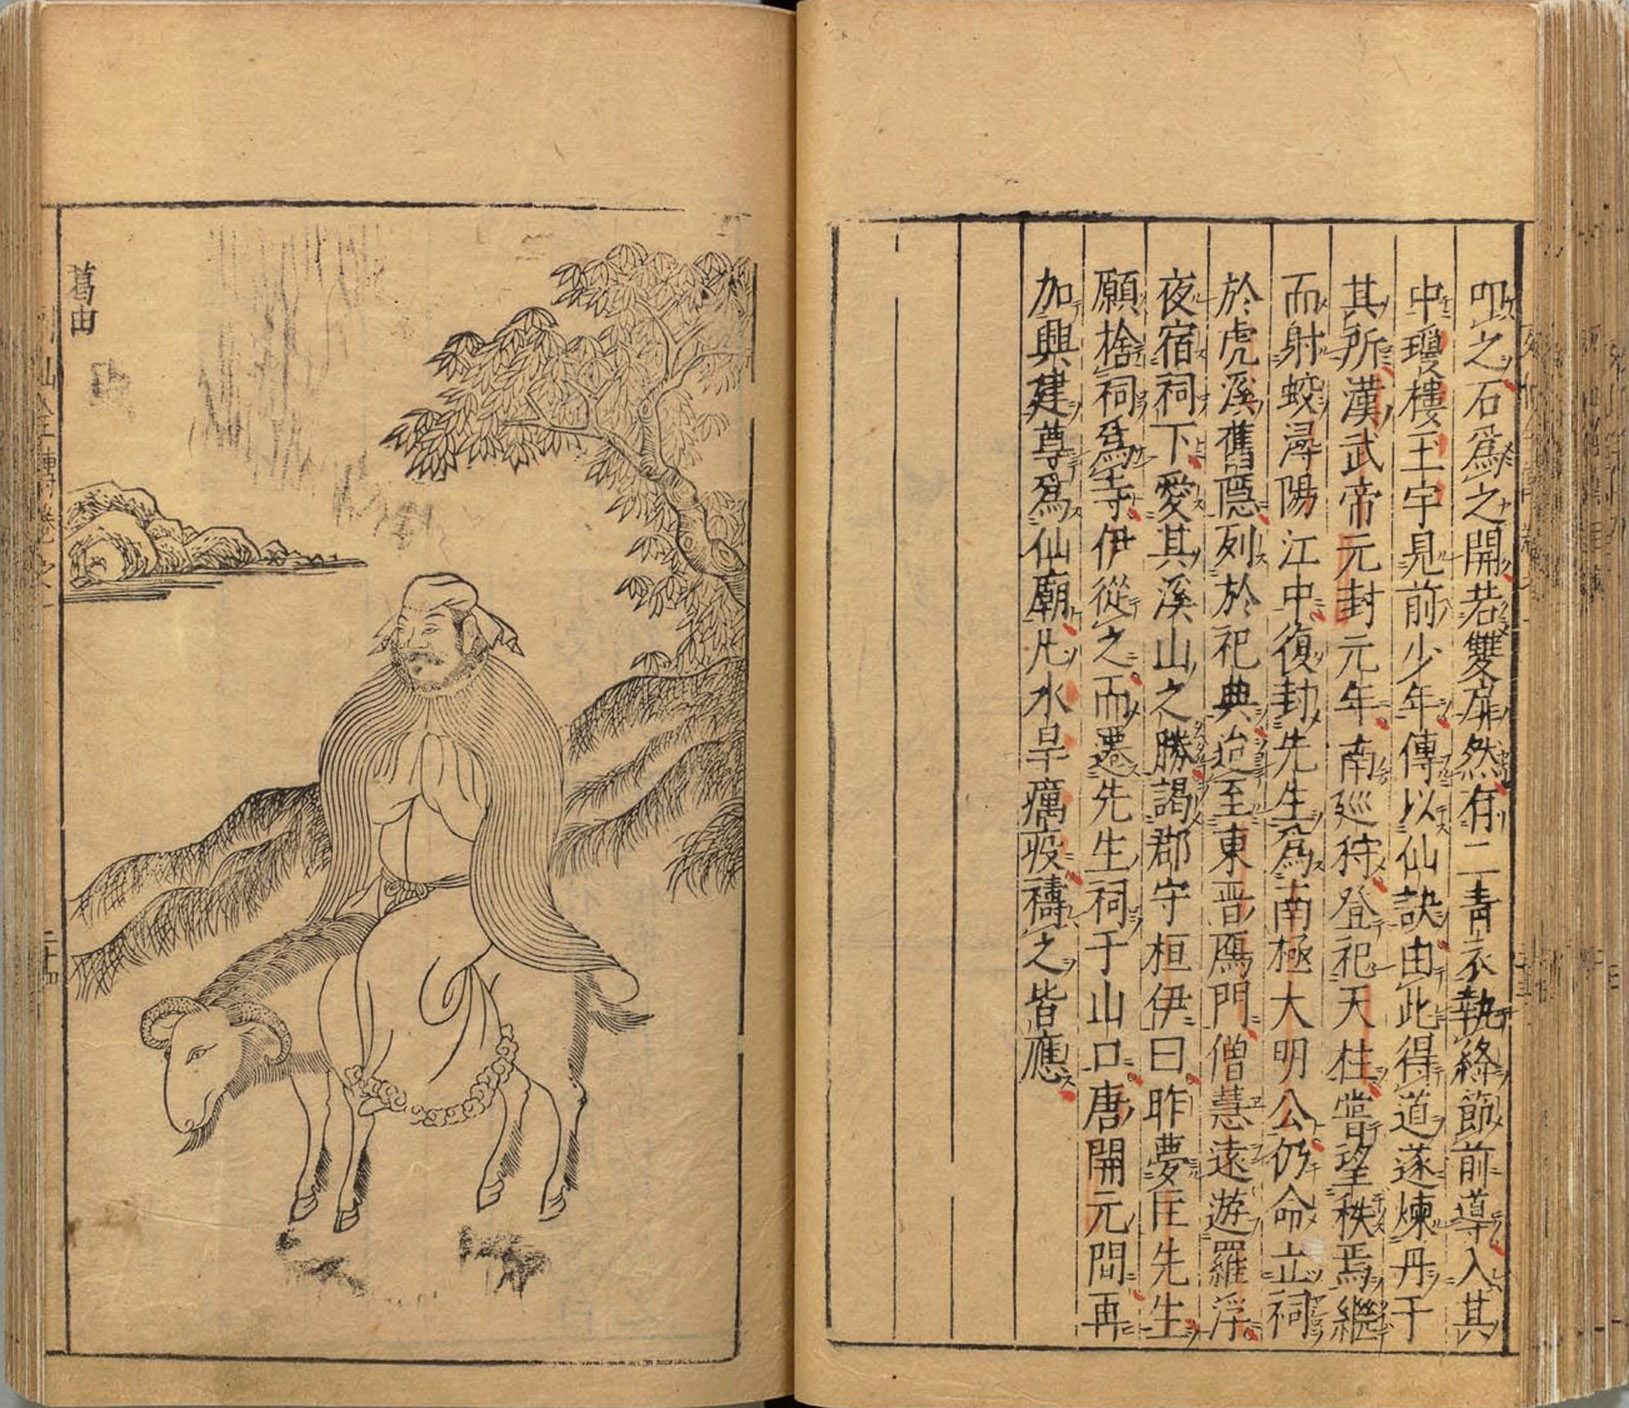 叩之石爲之開若雙扉然有二青衣執絳節前導入其
中瓊樓玉宇見前少年傳以仙訣由此得道遂煉丹于
其所漢武帝元封元年南巡狩登祀天柱嘗望秩焉繼
而射蛟潯陽江中復封先生爲南極大明公仍命立祠
於虎溪舊隱列於祀典迨至東晋鴈門僧慧遠遊羅浮
夜宿祠下愛其溪山之勝謁郡守桓伊曰昨夢匡先生
願捨祠爲寺伊從之而遷先生祠于山口唐開元間再
加興建尊爲仙廟凡水旱癘疫禱之皆應
葛由
仙全傳卷之一
二十四